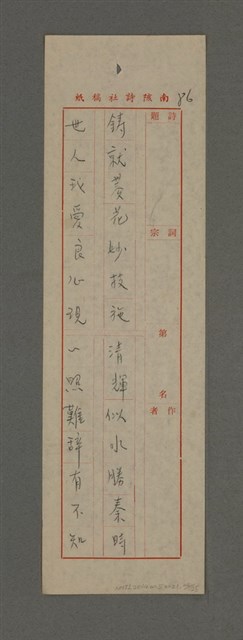 南陔詩社稿紙
86
詩題
詞宗
第 名
作者
鑄就菱花妙技施清輝似水勝秦時
世人我愛良心現一照難辭有不知